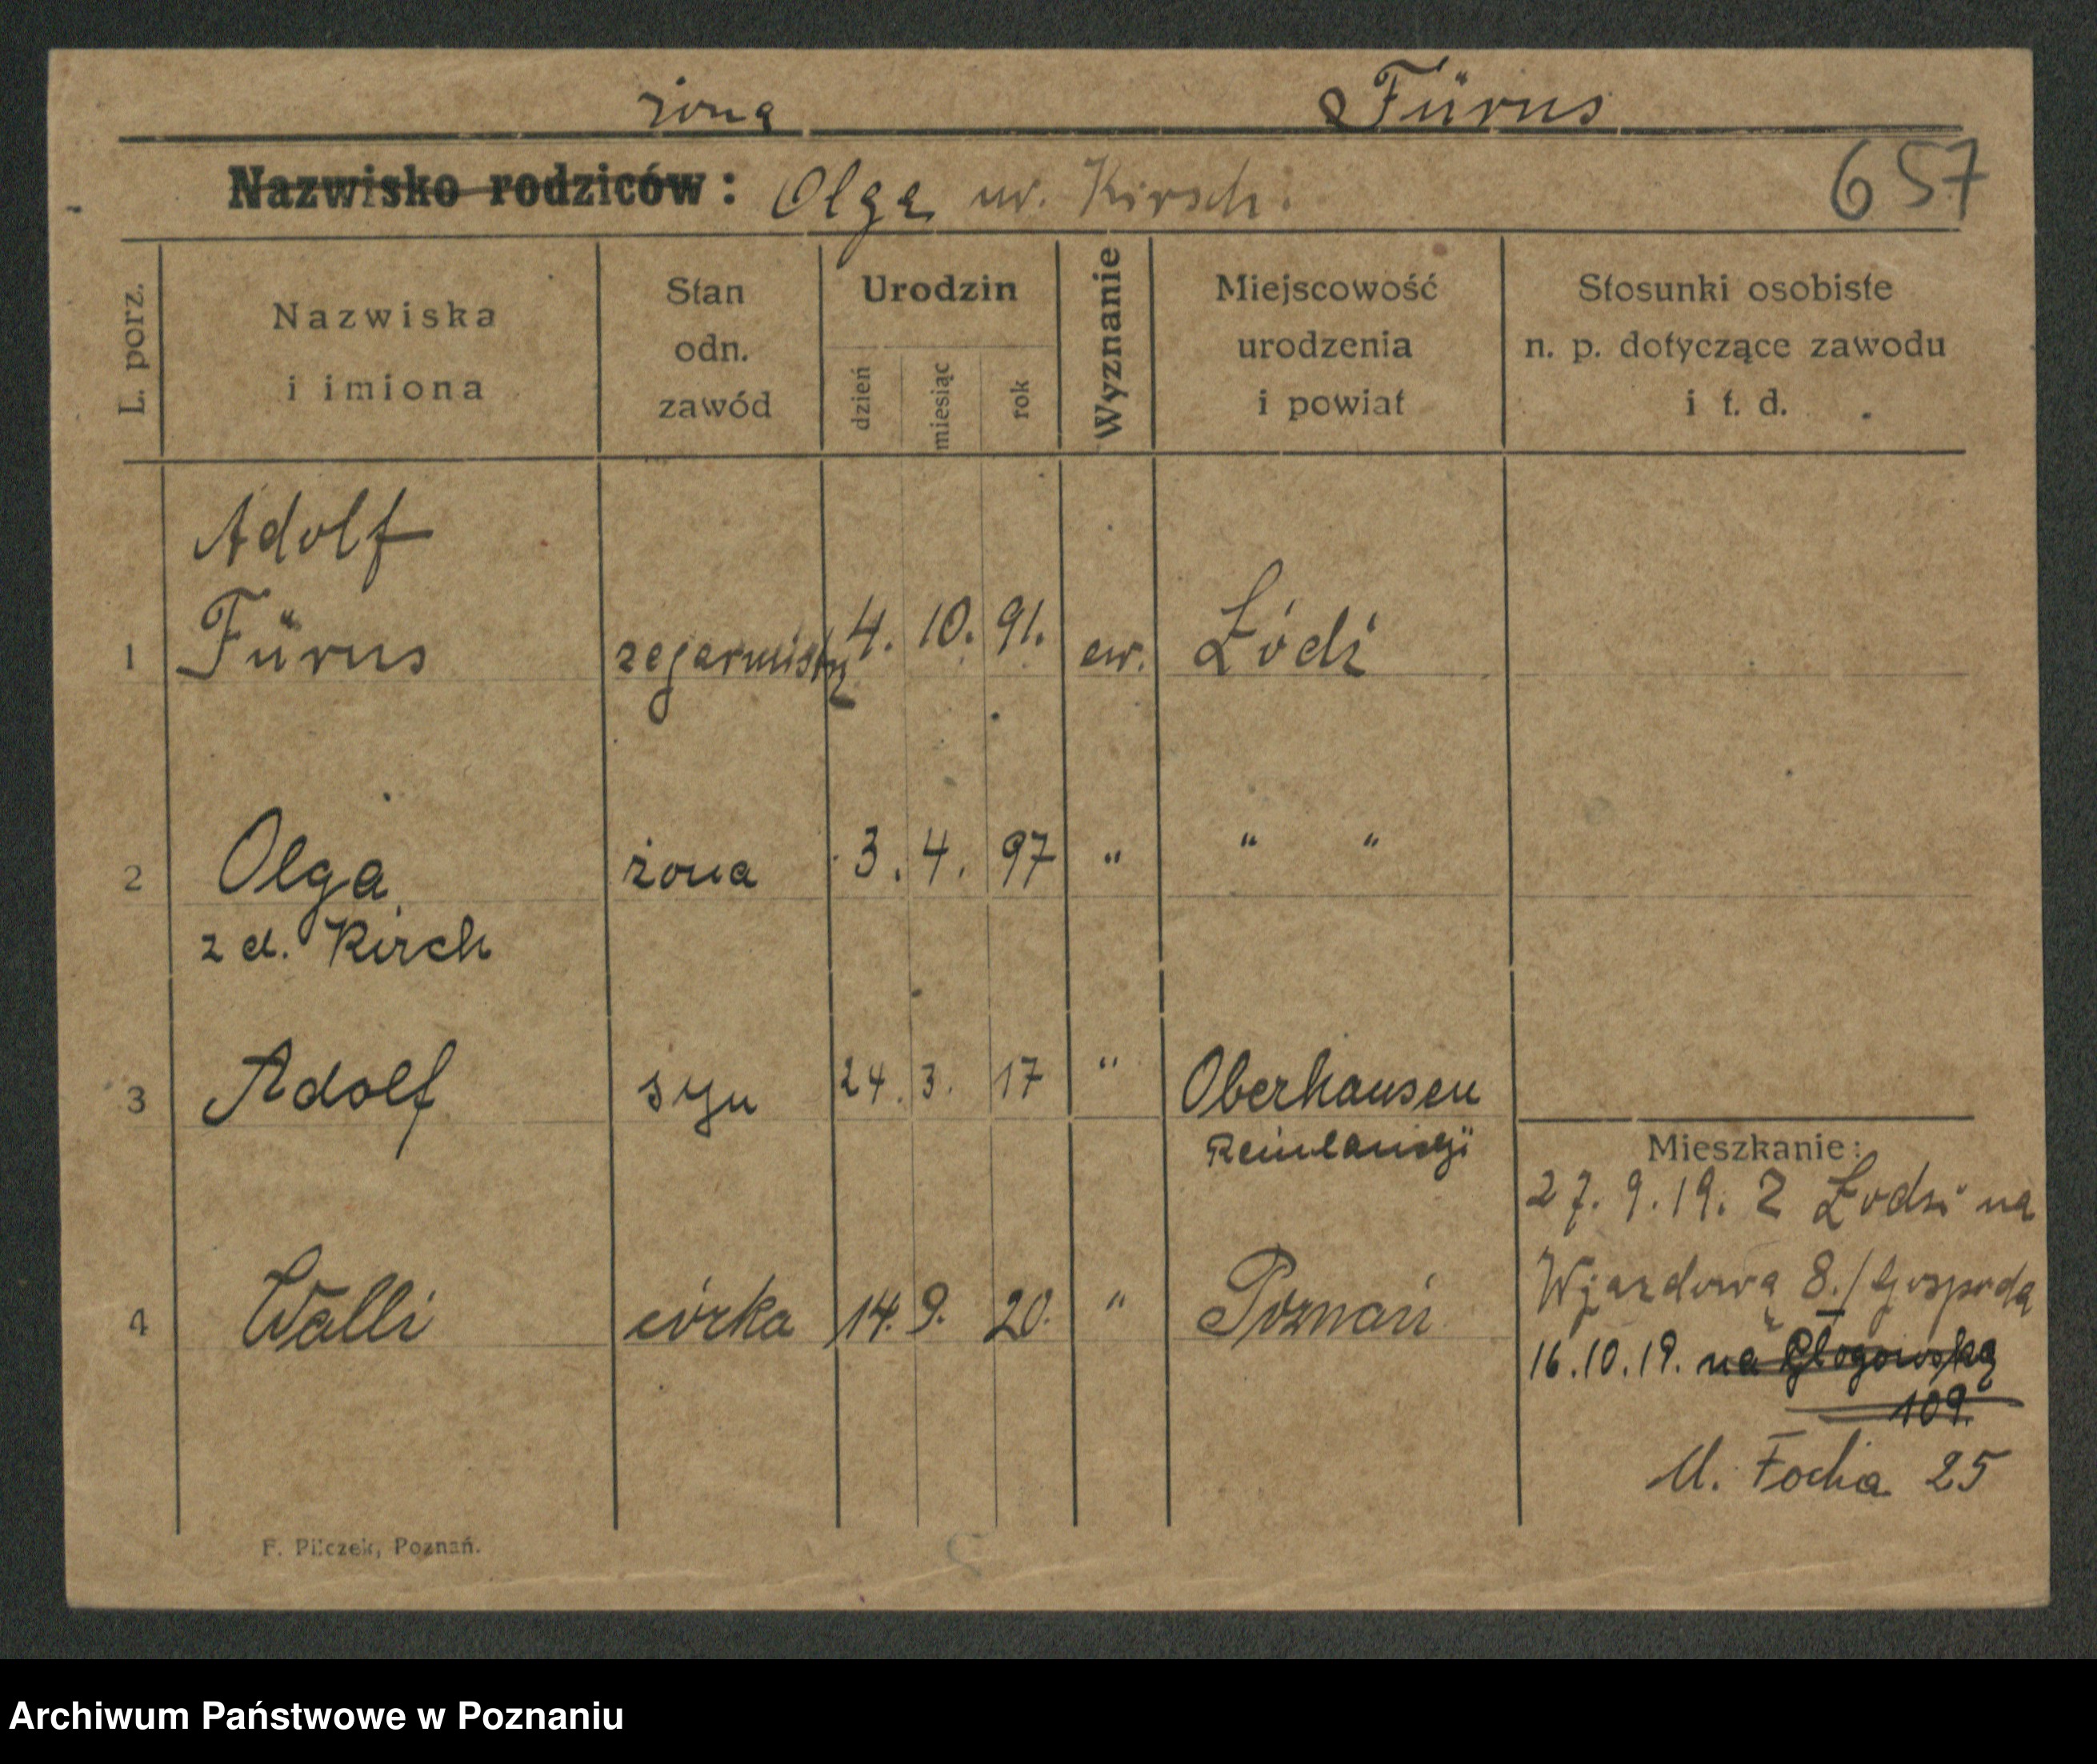 żona Fürus
Nazwisko rodziców: Olga ur. Kirsch.
657
L. porz.
Nazwiska
i imiona
Stan
odn.
zawód
Urodzin
dzień
miesiąc
rok
Wyznanie
Miejscowość
urodzenia
i powiat
Stosunki osobiste
n. p. dotyczące zawodu
i t. d.
Adolf
1 Fürus zegarmistrz 4. 10. 91. ew. Łódź
2 Olga żona 3. 4. 97 " " "
z d. Kirch
3 Adolf syn 24. 3. 17 " Oberhausen
4 Walli córka 14. 9. 20. " Poznań
Mieszkanie:
27. 9. 19. Z Łodzi na
Wjazdową 8./Gospoda
16.10.19. na Głogowską
109.
M. Focha 25
F. Pilczek, Poznań.
Archiwum Państwowe w Poznaniu